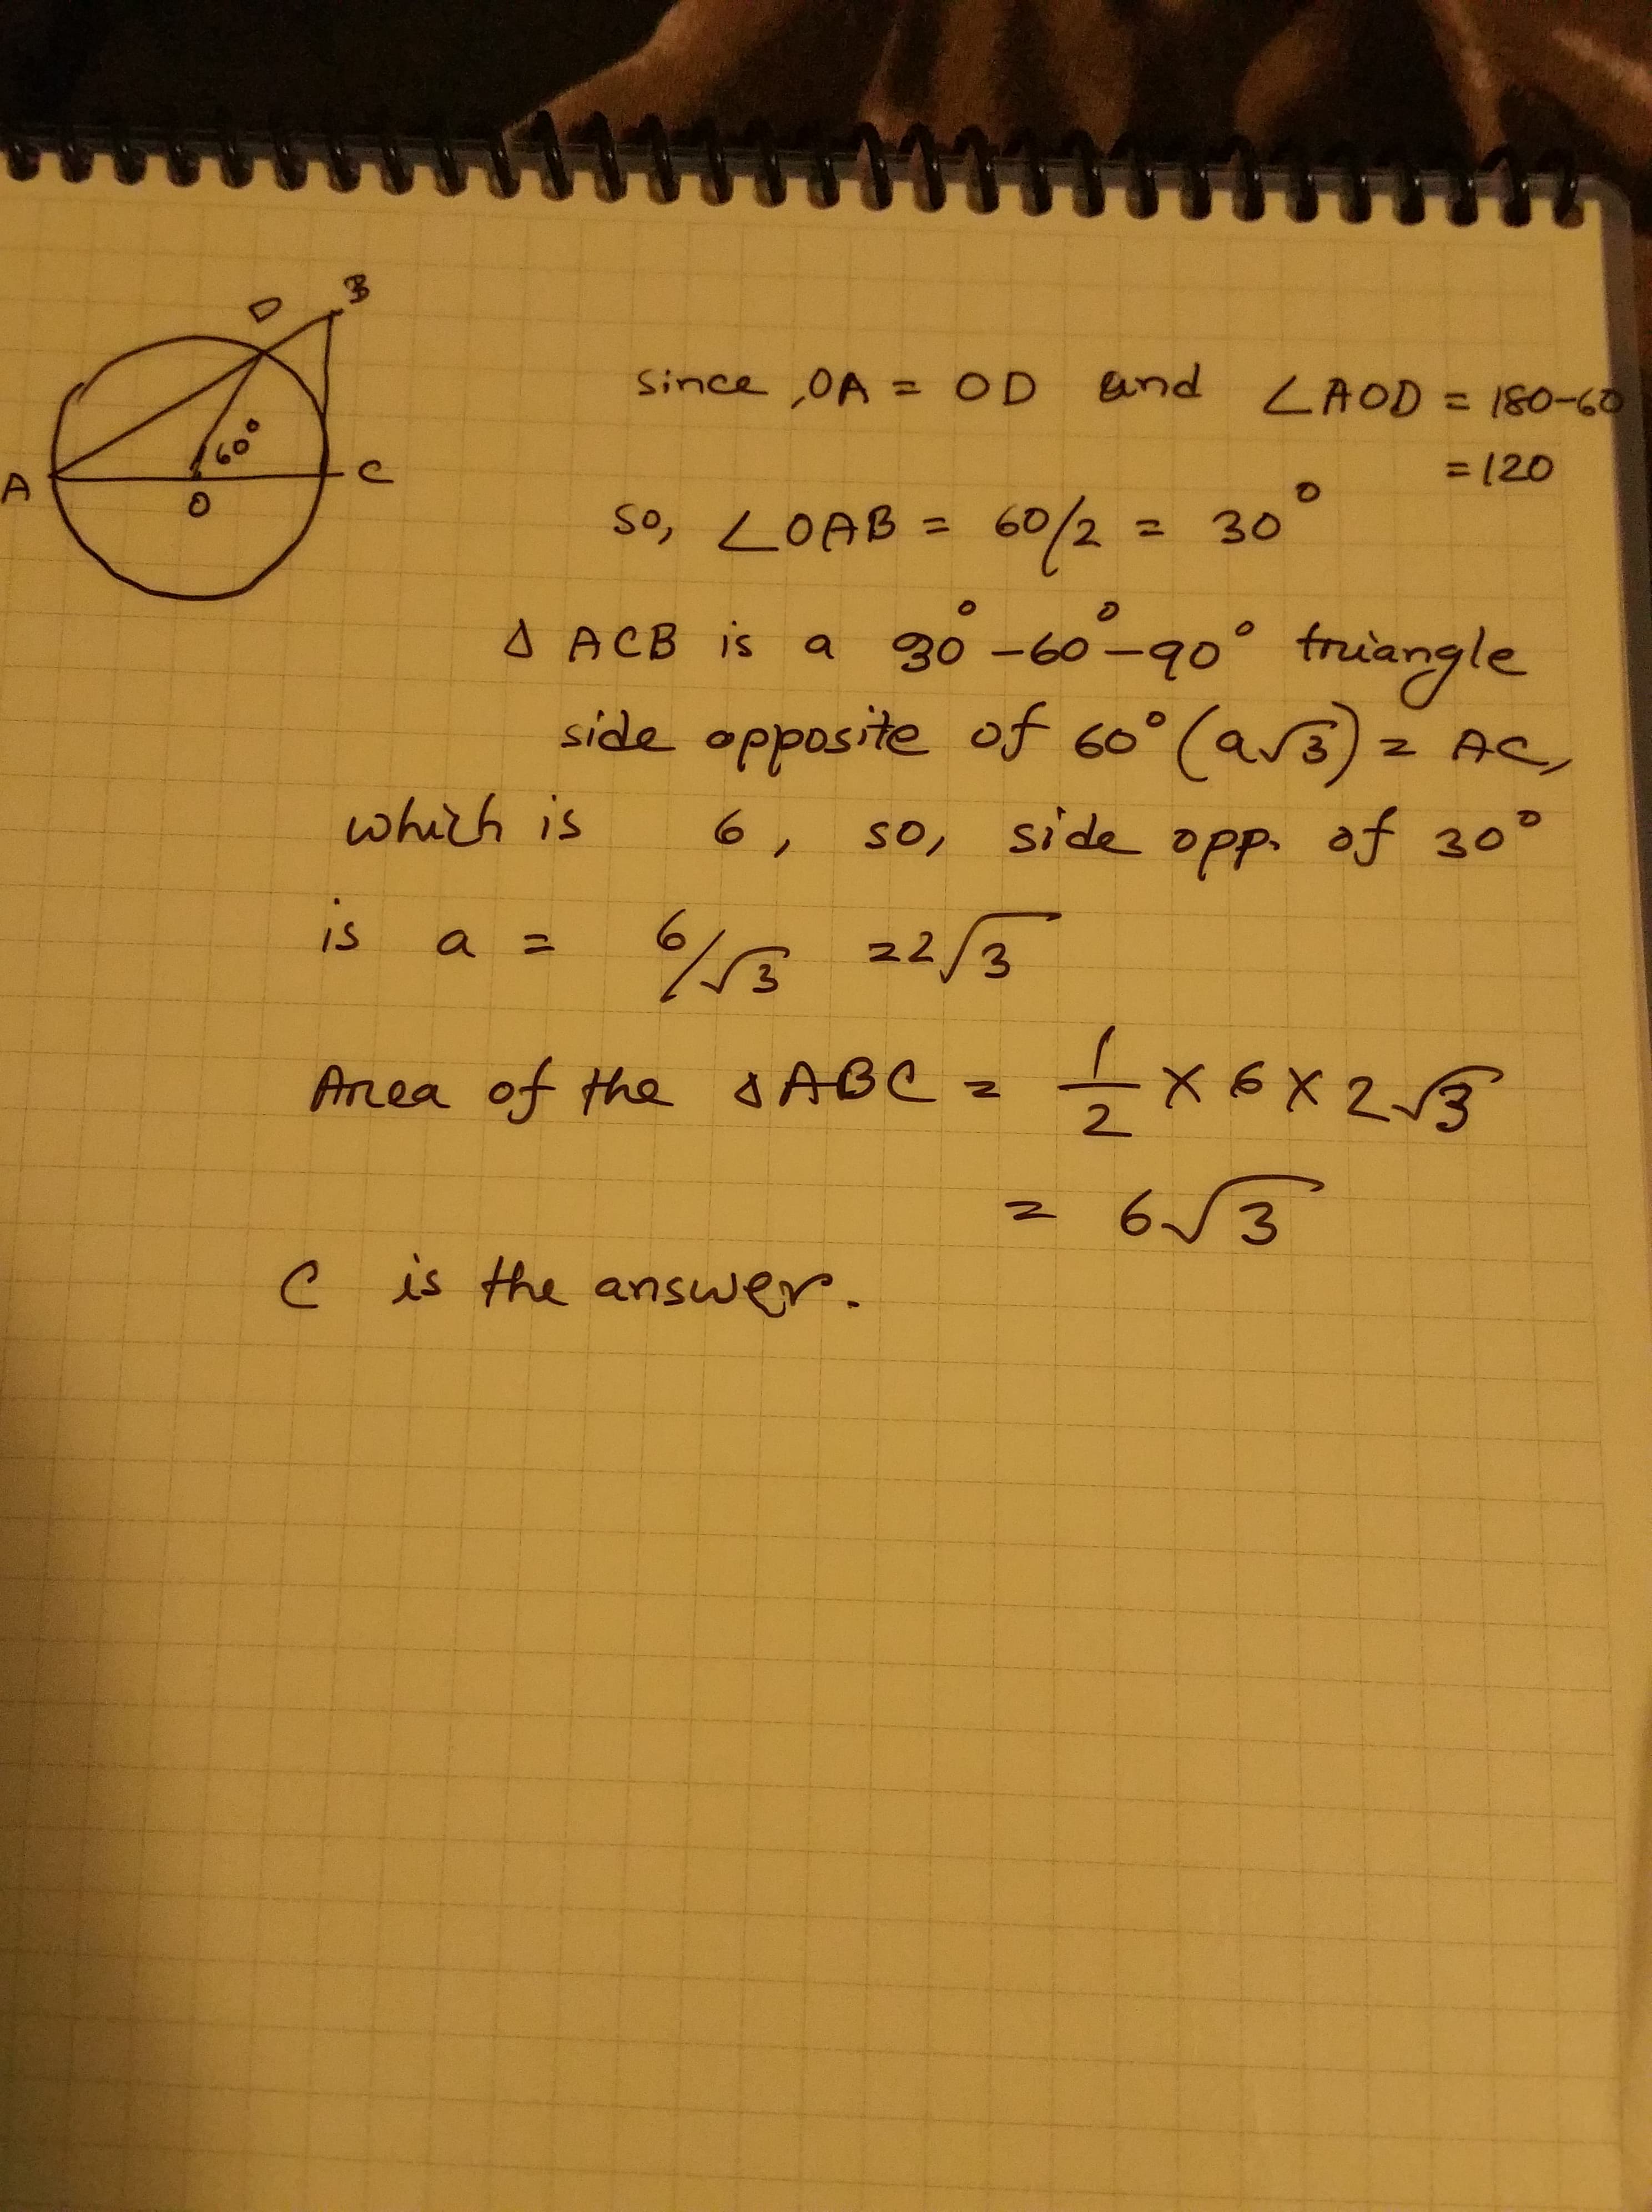 D B
60°
A O C
since, OA = OD and ∠AOD = 180-60
=120
so, ∠OAB = 60/2 = 30°
Δ ACB is a 30°-60°-90° triangle
side opposite of 60° (a√3) = AC,
which is 6, so, side opp. of 30°
is a = 6/√3 = 2√3
Area of the ΔABC = 1/2 × 6 × 2√3
= 6√3
C is the answer.